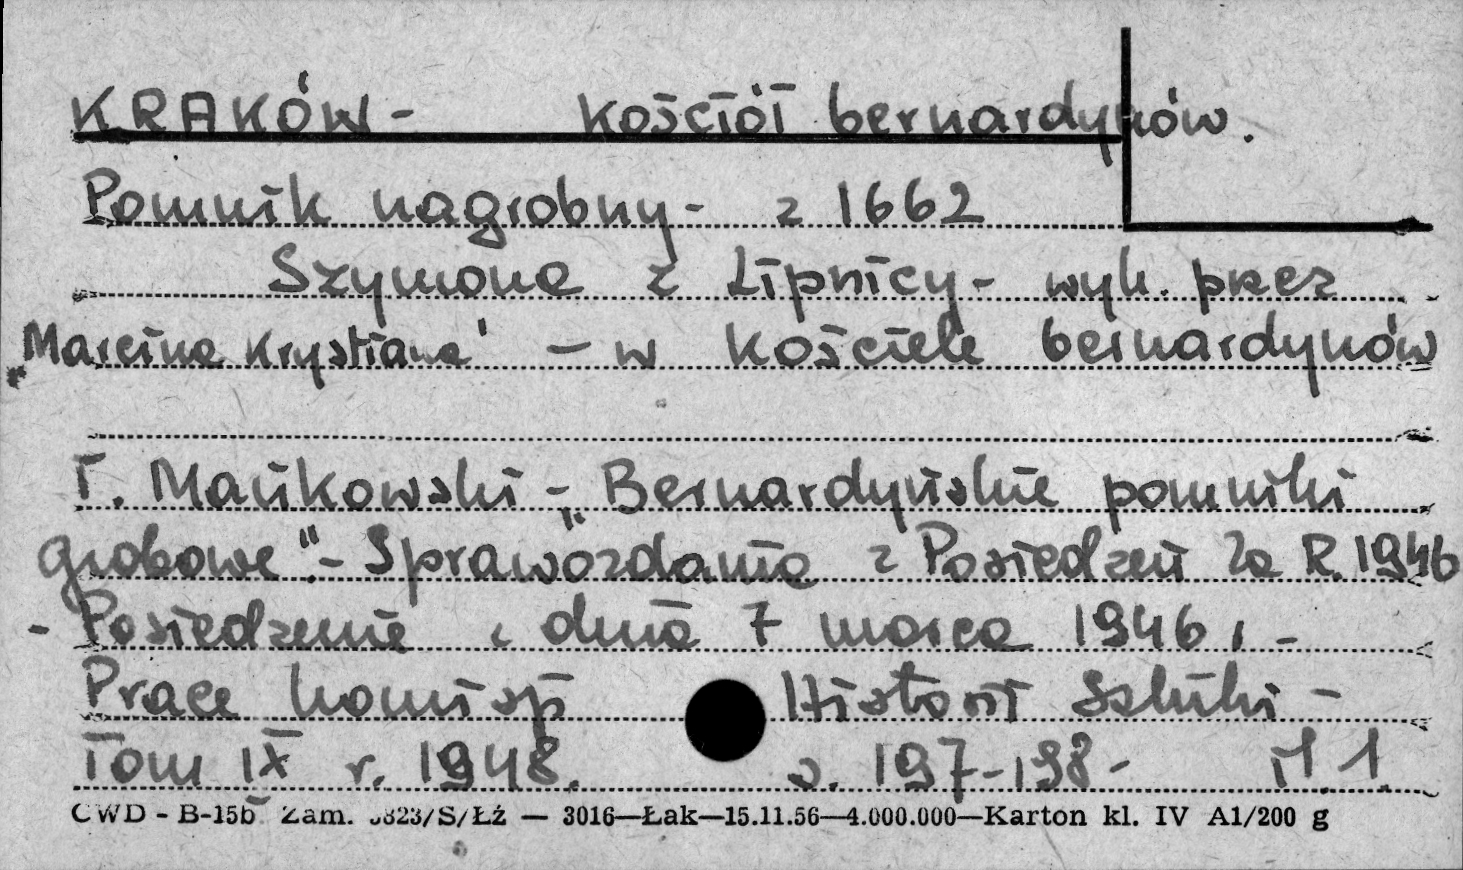 KRAKÓW - Kościół bernardynów.
Pomnik nagrobny - z 1662
Szymona z Lipnicy - wyk. przez
„Marcina Krystiana" - w kościele bernardynów
T. Mańkowski - „Bernardyńskie pomniki
grobowe". - Sprawozdania z Posiedzeń za R. 1946
- Posiedzenie z dnia 7 marca 1946 r -
Prace Komisji Historii Sztuki -
Tom IX r. 1948. s. 197-198 -
CWD - B-15b Zam. 5823/S/Łź — 3016—Łak—15.11.56—4.000.000—Karton kl. IV A1/200 g